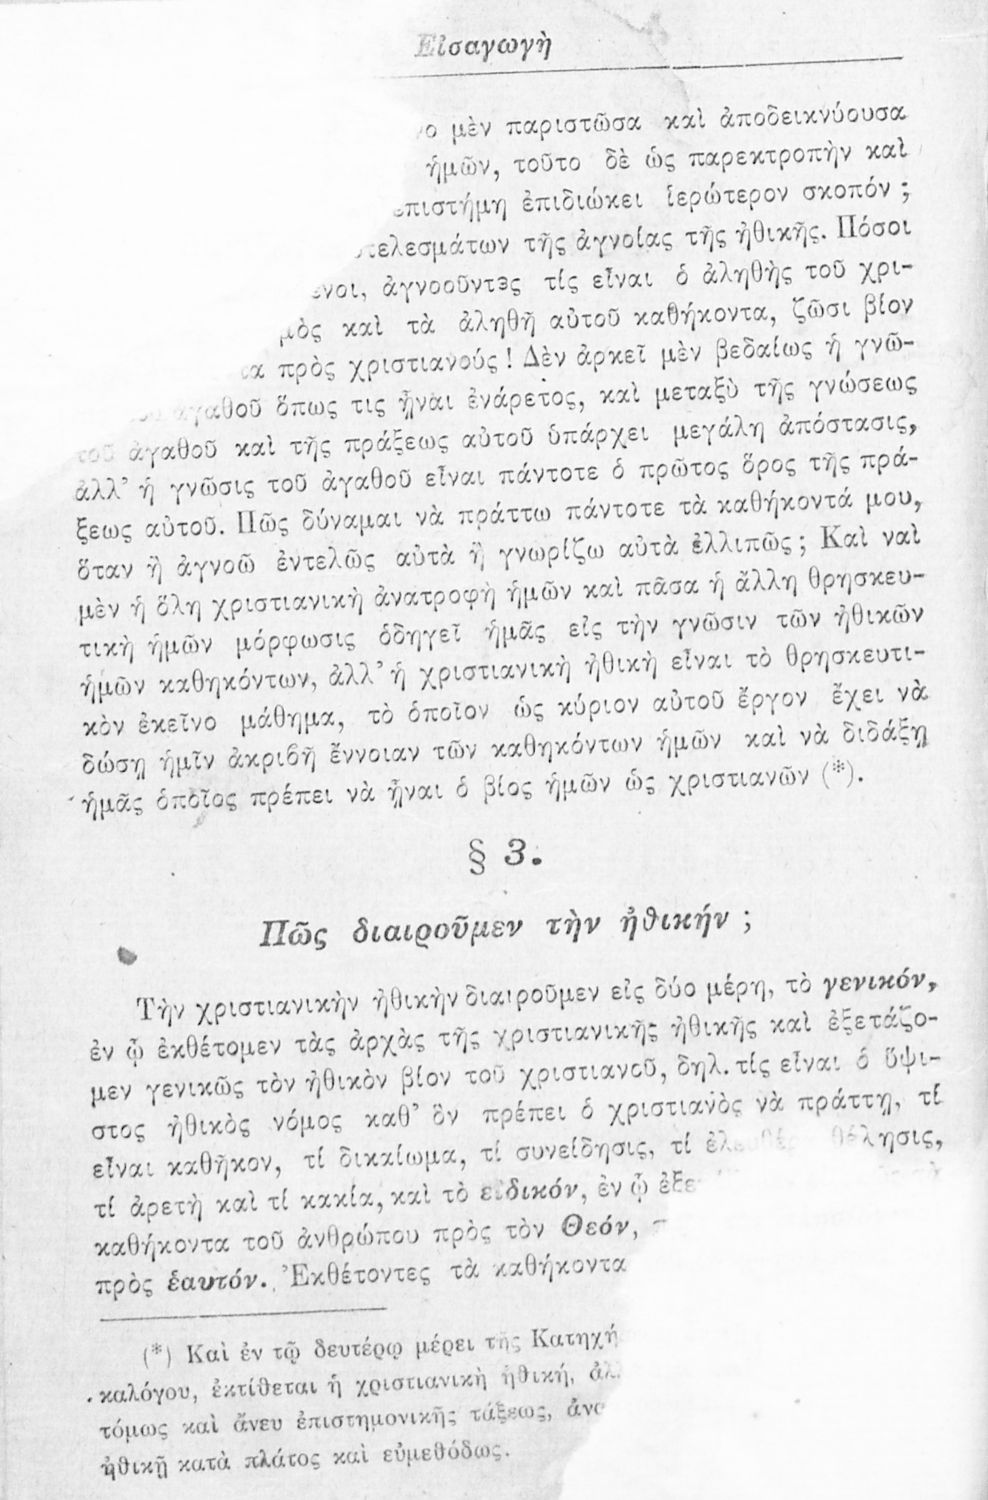 Εἰσαγωγὴ
μὲν παριστῶσα καὶ ἀποδεικνύουσα
ἡμῶν, τοῦτο δὲ ὡς παρεκτροπὴν καὶ
ἐπιστήμη ἐπιδιώκει ἱερώτερον σκοπόν ;
τελεσμάτων τῆς ἀγνοίας τῆς ἠθικῆς. Πόσοι
ενοι, ἀγνοοῦντες τίς εἶναι ὁ ἀληθὴς τοῦ χρι-
μὸς καὶ τὰ ἀληθῆ αὐτοῦ καθήκοντα, ζῶσι βίον
πρὸς χριστιανούς ! Δὲν ἀρκεῖ μὲν βεβαίως ἡ γνῶ-
ἀγαθοῦ ὅπως τις ᾖναι ἐνάρετος, καὶ μεταξὺ τῆς γνώσεως
τοῦ ἀγαθοῦ καὶ τῆς πράξεως αὐτοῦ ὑπάρχει μεγάλη ἀπόστασις,
ἀλλ' ἡ γνῶσις τοῦ ἀγαθοῦ εἶναι πάντοτε ὁ πρῶτος ὅρος τῆς πρά-
ξεως αὐτοῦ. Πῶς δύναμαι νὰ πράττω πάντοτε τὰ καθήκοντά μου,
ὅταν ἢ ἀγνοῶ ἐντελῶς αὐτὰ ἢ γνωρίζω αὐτὰ ἐλλιπῶς ; Καὶ ναὶ
μὲν ἡ ὅλη χριστιανικὴ ἀνατροφὴ ἡμῶν καὶ πᾶσα ἡ ἄλλη θρησκευ-
τικὴ ἡμῶν μόρφωσις ὁδηγεῖ ἡμᾶς εἰς τὴν γνῶσιν τῶν ἠθικῶν
ἡμῶν καθηκόντων, ἀλλ' ἡ χριστιανικὴ ἠθικὴ εἶναι τὸ θρησκευτι-
κὸν ἐκεῖνο μάθημα, τὸ ὁποῖον ὡς κύριον αὐτοῦ ἔργον ἔχει νὰ
δώσῃ ἡμῖν ἀκριβῆ ἔννοιαν τῶν καθηκόντων ἡμῶν καὶ νὰ διδάξῃ
ἡμᾶς ὁποῖος πρέπει νὰ ᾖναι ὁ βίος ἡμῶν ὡς χριστιανῶν (*).
§ 3.
Πῶς διαιροῦμεν τὴν ἠθικήν ;
Τὴν χριστιανικὴν ἠθικὴν διαιροῦμεν εἰς δύο μέρη, τὸ γενικόν,
ἐν ᾧ ἐκθέτομεν τὰς ἀρχὰς τῆς χριστιανικῆς ἠθικῆς καὶ ἐξετάζο-
μεν γενικῶς τὸν ἠθικὸν βίον τοῦ χριστιανοῦ, δηλ. τίς εἶναι ὁ ὕψι-
στος ἠθικὸς νόμος καθ' ὃν πρέπει ὁ χριστιανὸς νὰ πράττῃ, τί
εἶναι καθῆκον, τί δικαίωμα, τί συνείδησις, τί θέλησις,
τί ἀρετὴ καὶ τί κακία, καὶ τὸ εἰδικόν, ἐν ᾧ ἐξε
καθήκοντα τοῦ ἀνθρώπου πρὸς τὸν Θεόν,
πρὸς ἑαυτόν. Ἐκθέτοντες τὰ καθήκοντα
(*) Καὶ ἐν τῷ δευτέρῳ μέρει τῆς Κατηχή
καλόγου, ἐκτίθεται ἡ χριστιανικὴ ἠθική, ἀλ
τόμως καὶ ἄνευ ἐπιστημονικῆς τάξεως, ἀν
ἠθικῇ κατὰ πλάτος καὶ εὐμεθόδως.